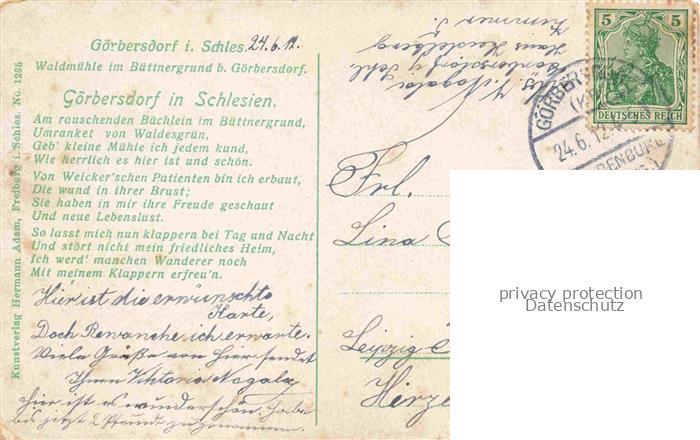 Görbersdorf i. Schles. 24.6.12.
Waldmühle im Büttnergrund b. Görbersdorf.
Görbersdorf in Schlesien.
Am rauschenden Bächlein im Büttnergrund,
Umranket von Waldesgrün,
Geb' kleine Mühle ich jedem kund,
Wie herrlich es hier ist und schön.
Von Weicker'schen Patienten bin ich erbaut,
Die wund in ihrer Brust;
Sie haben in mir ihre Freude geschaut
Und neue Lebenslust.
So lasst mich nun klappern bei Tag und Nacht
Und stört nicht mein friedliches Heim,
Ich werd' manchen Wanderer noch
Mit meinem Klappern erfreu'n.
Hier ist die erwünschte
Karte,
Doch Revanche ich erwarte.
Viele Grüße von hier sendet
Ihnen Viktoria Nagala
Hier ist es wunderschön, habe
bis jetzt 2 Pfunde zugenommen.
Kunstverlag Hermann Adam, Freiburg i. Schles. No. 1235
Nagala
Görbersdorf Schl.
Haus Heidelberg
Zimmer 5.
5 5
DEUTSCHES REICH
GÖRBERS
24.6.12
DENBURG
Frl.
Lina
Leipzig
Herze
privacy protection
Datenschutz